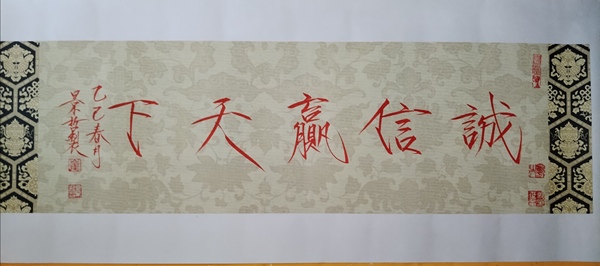 誠信贏天下
乙巳春月